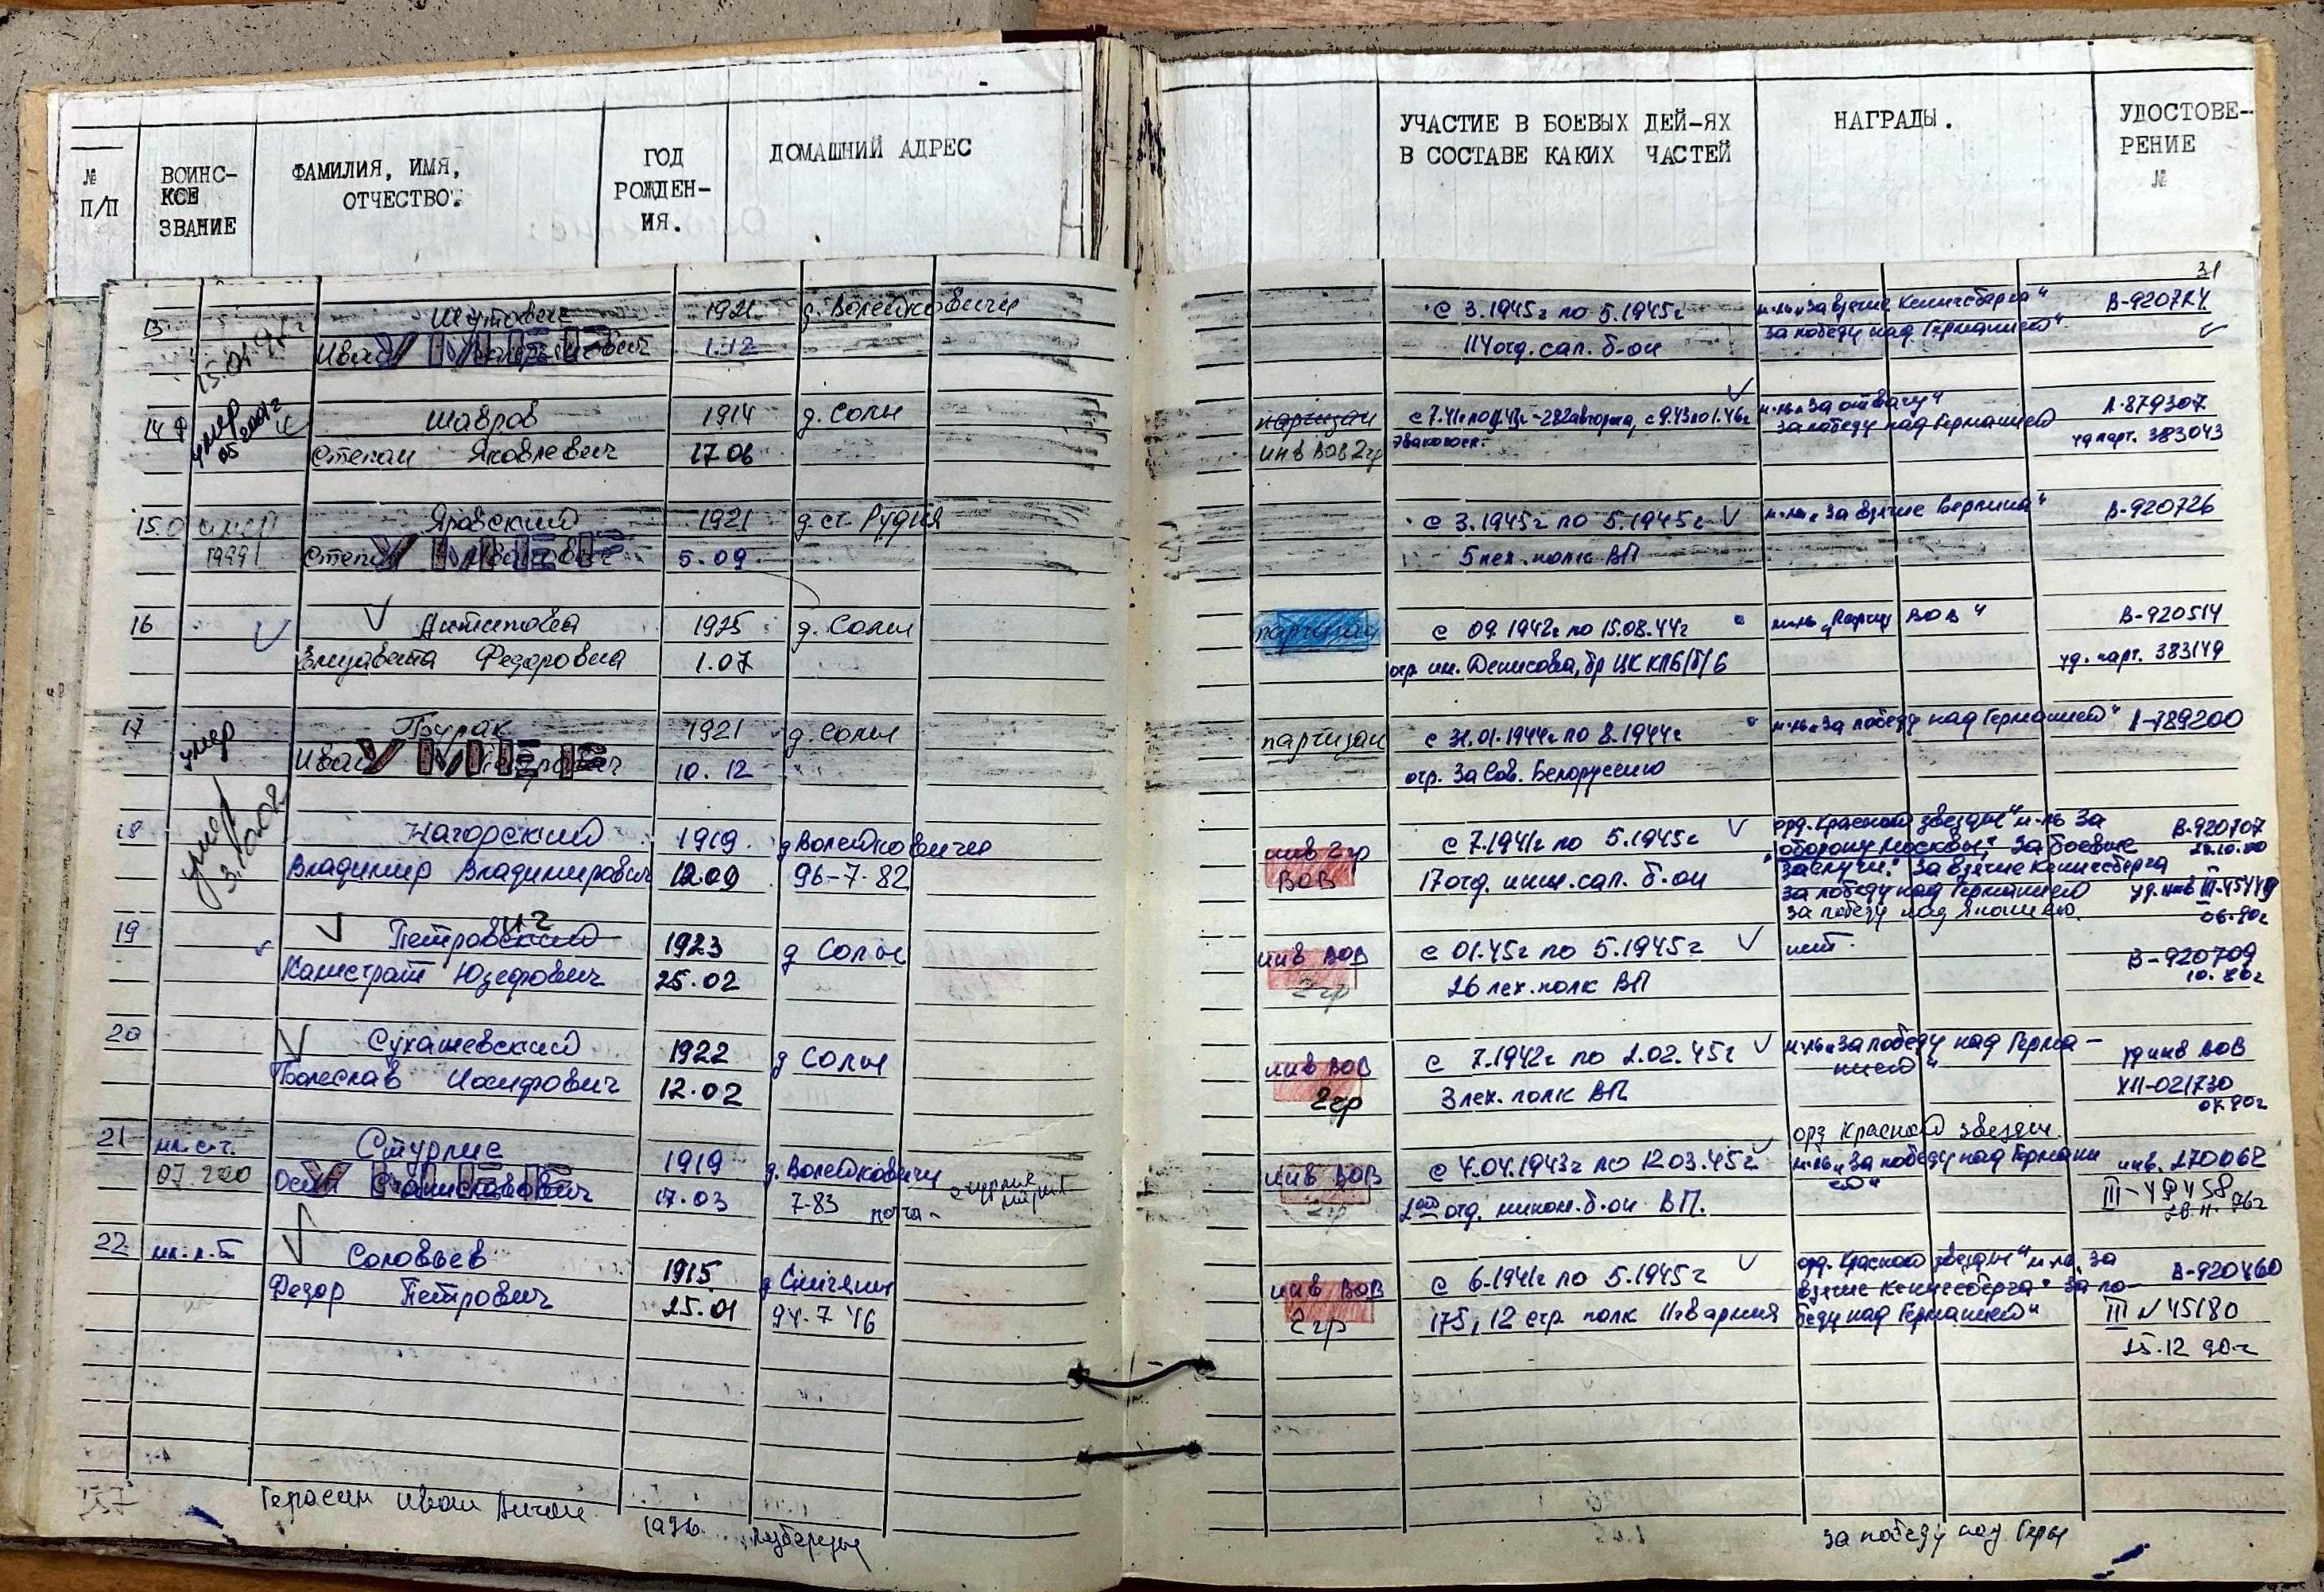 № П/П
ВОИНС-
КОЕ
ЗВАНИЕ
ФАМИЛИЯ, ИМЯ,
ОТЧЕСТВО.
ГОД
РОЖДЕН-
ИЯ.
ДОМАШНИЙ АДРЕС
УЧАСТИЕ В БОЕВЫХ ДЕЙ-ЯХ
В СОСТАВЕ КАКИХ ЧАСТЕЙ
НАГРАДЫ.
УДОСТОВЕ-
РЕНИЕ
№
31
13 1921 д. Волейковичи с 3.1945г по 5.1945г м-ль "За взятие Кенигсберга" В-920724
Иван 1.12 114 отд. сап. б-он За победу над Германией"
УМЕР
14 умер Шавров 1914 д. Солы партизан м-ль "За отвагу" 1-879307
05 2001г Степан Яковлевич 17 06 инв ВОВ 2гр эвакогосп. За победу над Германией уд парт. 383043
15. умер Яровский 1921 д. ст. Рудня с 3.1945г по 5.1945г м-ль "За взятие Берлина" В-920726
1999г Степан Иванович 5.09 5 пех. полк ВП
УМЕР
16 Антипова 1925 д. Солы партизан с 09.1942г по 15.08.44г м-ль "Парт ВОВ" В-920514
Елизавета Федоровна 1.07 отр им. Денисова, бр ЦК КПб/б/б уд. парт. 383149
17 умер Бурак 1921 д Солы партизан с 31.01.1944г по 8.1944г м-ль "За победу над Германией" 1-789200
Иван 10.12 отр. За Сов. Белоруссию
УМЕР
18 умер Нагорский 1919 д Волейковичи инв 2гр с 7.1941г по 5.1945г орд. Красной звезды" м-ль За В-920707
3.10.02 Владимир Владимирович 12.09 96-7-82 ВОВ 17 отд. инж. сап. б-он оборону Москвы," За боевые
заслуги." За взятие Кенигсберга
За победу над Германией уд. инв III-45449
За победу над Японией. 06.80г
19 Петровский ич 1923 д Солы инв ВОВ с 01.45г по 5.1945г нет. В-920709
Калистрат Юзефович 25.02 2гр 26 пех. полк ВП 10.80г
20 Сухашевский 1922 д Солы инв ВОВ с 7.1942г по 2.02.45г м-ль "За победу над Герма- уд инв ВОВ
Болеслав Иосифович 12.02 2гр 3 пех. полк ВП нией" XII-021730
21 мл. с-т. Стурлис 1919 д. Волейковичи инв ВОВ с 4.04.1943г по 12 03.45г орд Красной звезды. инв. 270062
Осип Станиславович 17.03 7-83 2гр отд. мином. б-он ВП. м-ль "За победу над Германи
УМЕР
22 мл. л-т Соловьев 1915 д Сничяны инв ВОВ с 6.1941г по 5.1945г орд. Красной звезды" м-ль. За В-920460
Федор Петрович 25.01 94-7 46 2гр 175, 12 стр полк 11 гв армия взятие Кенигсберга" За по-
беду над Германией" III № 45180
25.12 90г
Герасим Иван 1926
За победу над Герм